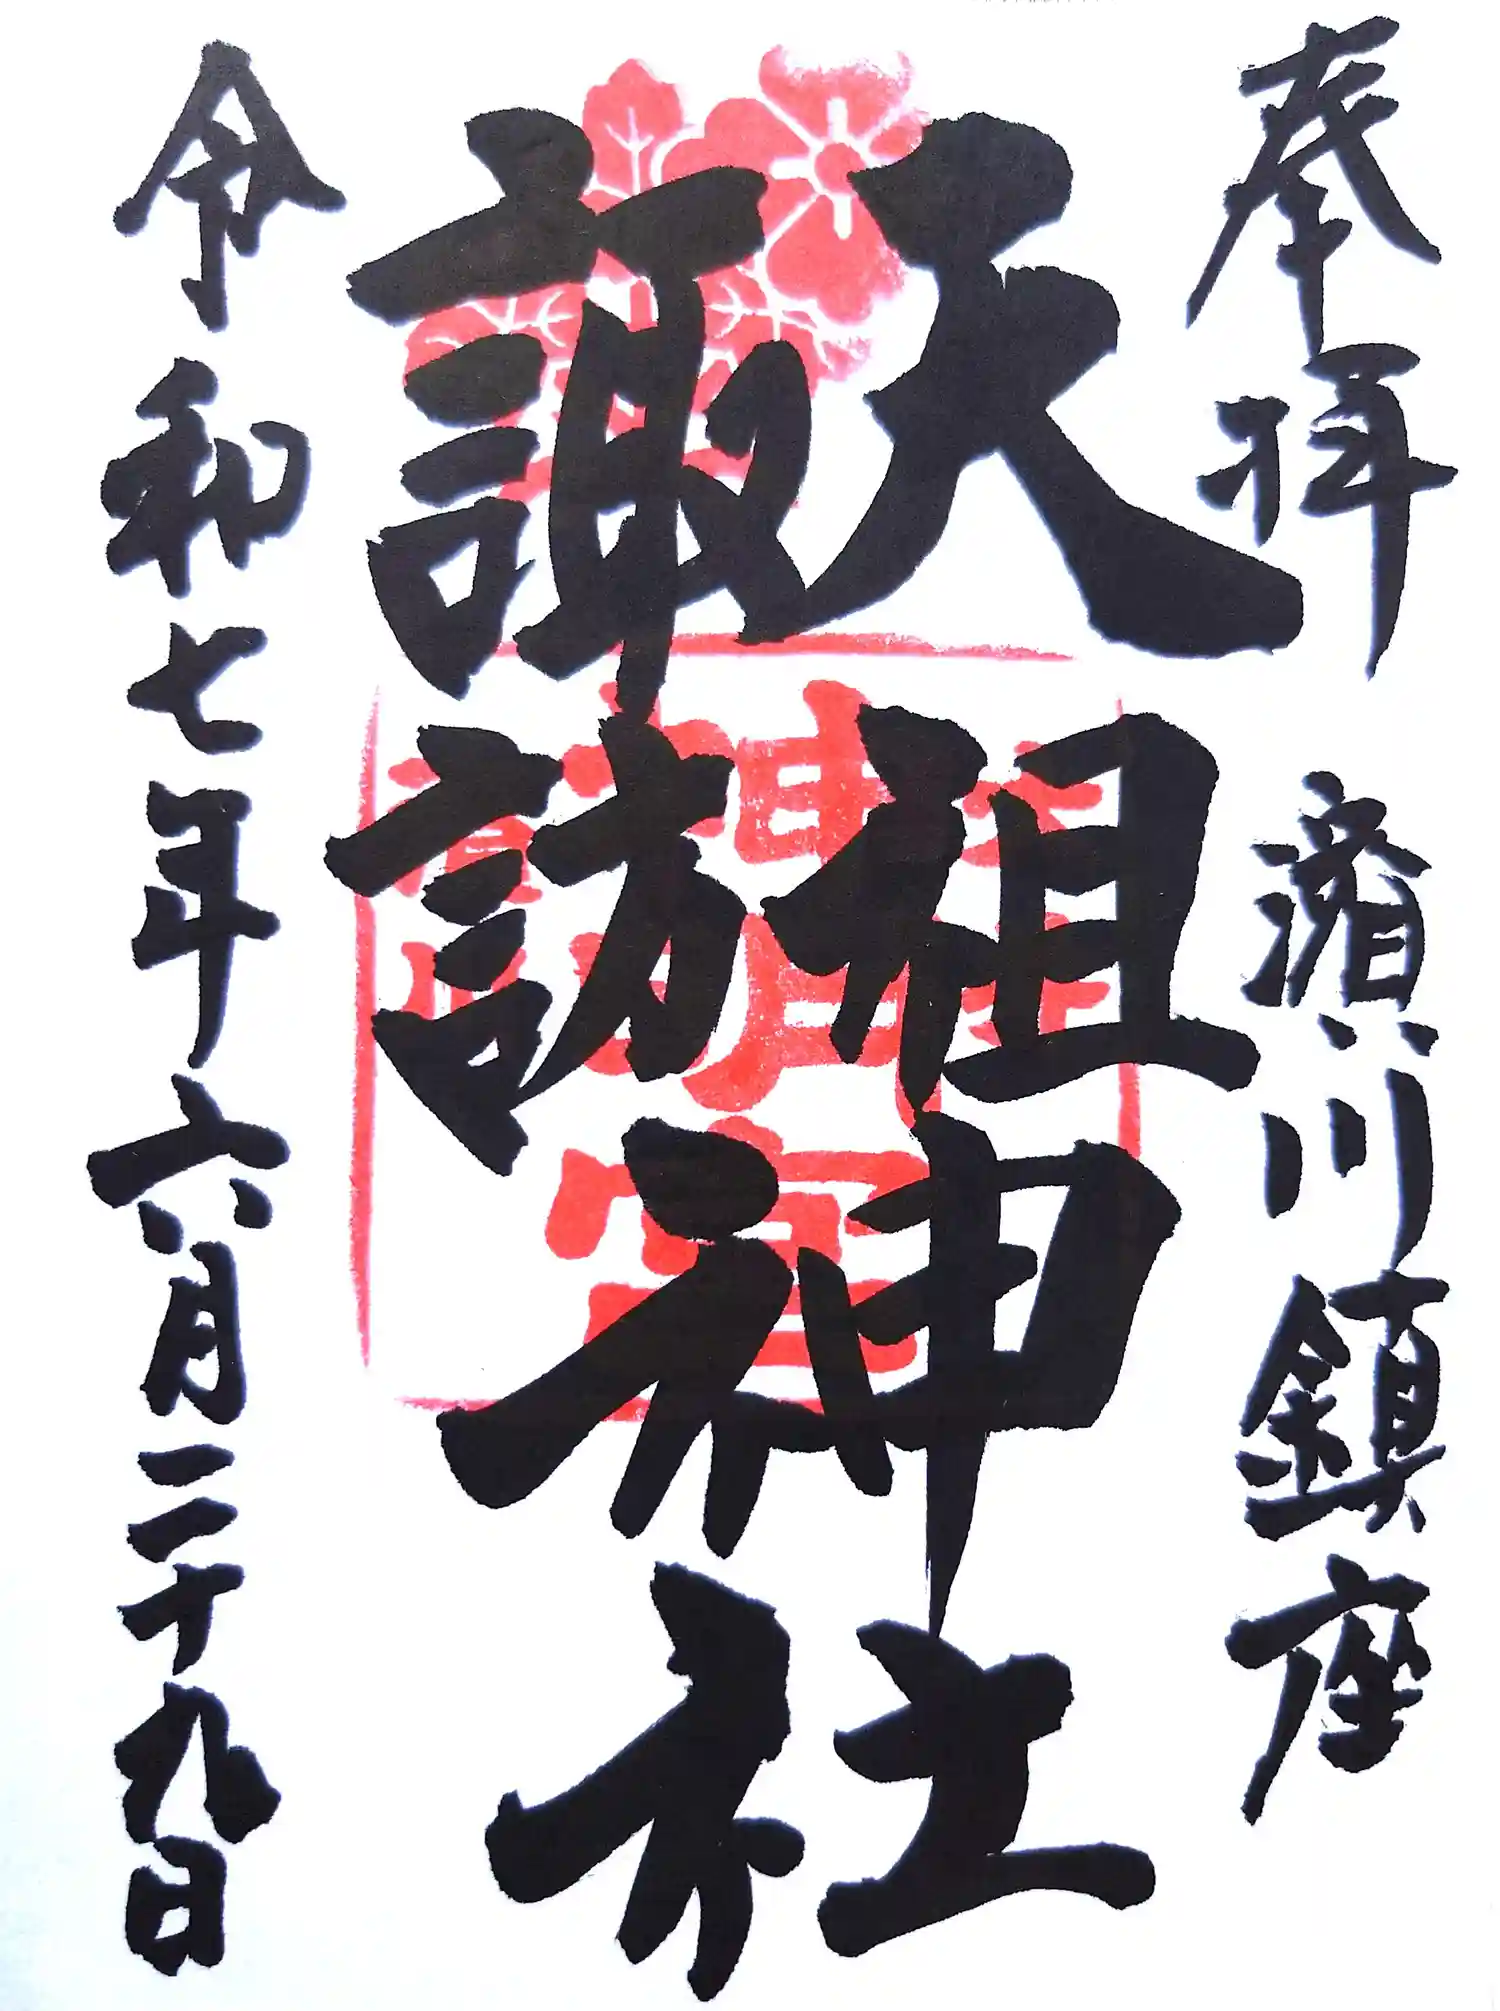 奉拝
濱川鎮座
天祖
諏訪
神社
神明宮
令和七年六月二十九日